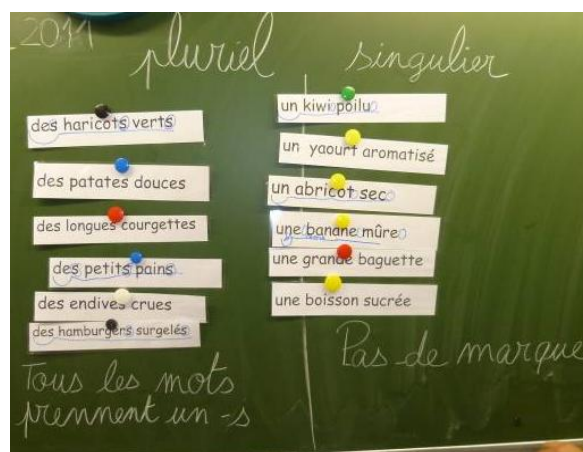 2011
pluriel
singulier
des haricots verts
des patates douces
des longues courgettes
des petits pains
des endives crues
des hamburgers surgelés
Tous les mots
prennent un -s
un kiwi poilu
un yaourt aromatisé
un abricot sec
une banane mûre
une grande baguette
une boisson sucrée
Pas de marque